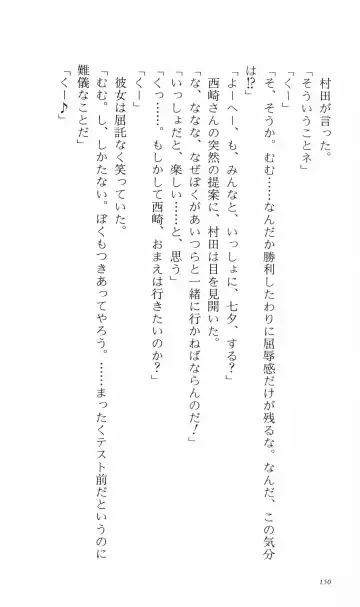 村田が言った。
「そういうことネ」
「くー」
「そ、そうか。むむ……なんだか勝利したわりに屈辱感だけが残るな。なんだ、この気分
は!?」
「よーへー、も、みんなと、いっしょに、七夕、する?」
西崎さんの突然の提案に、村田は目を見開いた。
「な、ななな、なぜぼくがあいつらと一緒に行かねばならんのだ!」
「いっしょだと、楽しい……と、思う」
「くっ……。もしかして西崎、おまえは行きたいのか?」
「くー」
彼女は屈託なく笑っていた。
「むむ。し、しかたない。ぼくもつきあってやろう。……まったくテスト前だというのに
難儀なことだ」
「くー♪」
150